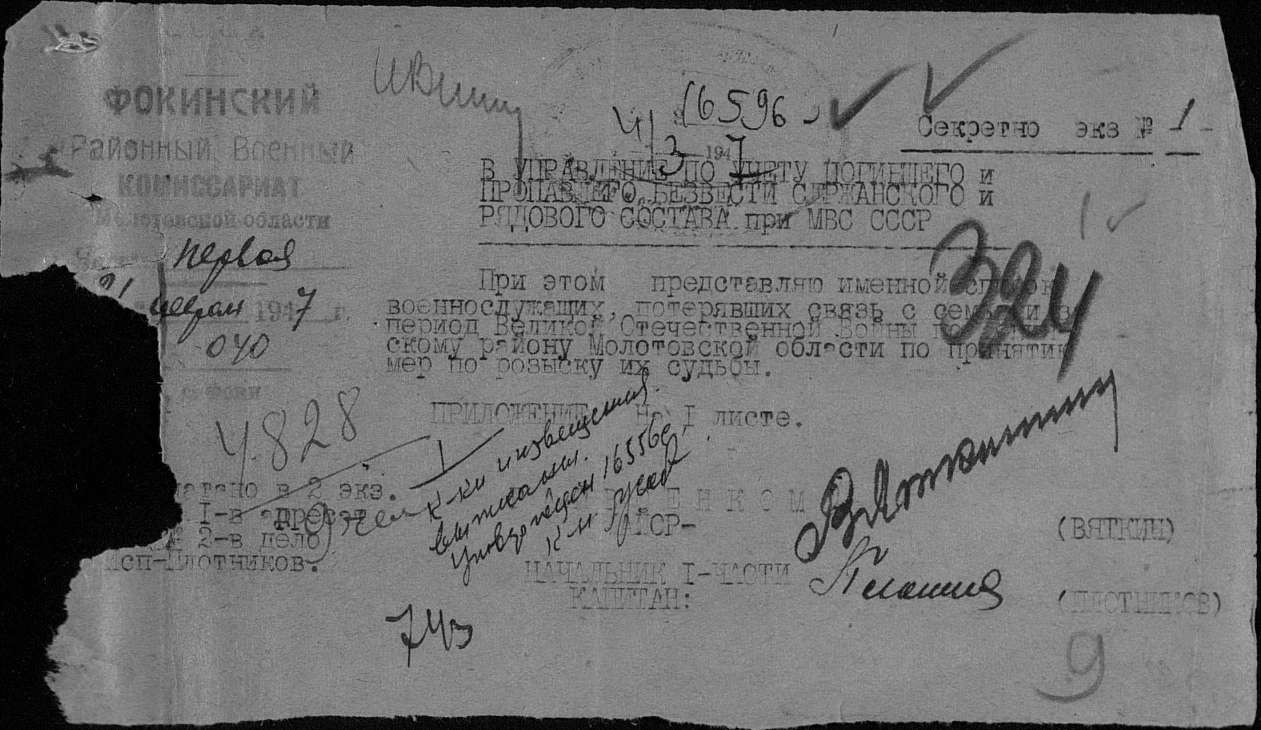 ФОКИНСКИЙ
Районный Военный
КОМИССАРИАТ
Молотовской области
Первая
1947 г.
040
16596
4/3 1947
Секретно экз № 1
В УПРАВЛЕНИЕ ПО УЧЕТУ ПОГИБШЕГО и
ПРОПАВШЕГО БЕЗВЕСТИ СЕРЖАНСКОГО и
РЯДОВОГО СОСТАВА при МВС СССР
324
При этом представляю именной список
военнослужащих, потерявших связь с семьями в
период Великой Отечественной Войны по
скому району Молотовской области по принятию
мер по розыску их судьбы.
ПРИЛОЖЕНИЕ: На I листе.
4828
в 2 экз.
I-в адресат
2-в дело
исп-Плотников.
к-ки извещения
выписаны.
(ВЯТКИН)
НАЧАЛЬНИК I-ЧАСТИ
КАПИТАН:
(ПЛОТНИКОВ)
743
9